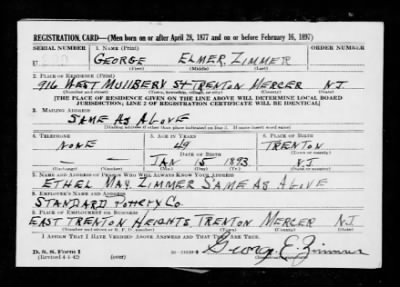 REGISTRATION CARD—(Men born on or after April 28, 1877 and on or before February 16, 1897)
SERIAL NUMBER 1. NAME (Print) ORDER NUMBER
U GEORGE ELMER ZIMMER
(First) (Middle) (Last)
2. PLACE OF RESIDENCE (Print)
916 WEST MULIBERY ST TRENTON MERCER N.J.
(Number and street) (Town, township, village, or city) (County) (State)
[THE PLACE OF RESIDENCE GIVEN ON THE LINE ABOVE WILL DETERMINE LOCAL BOARD
JURISDICTION; LINE 2 OF REGISTRATION CERTIFICATE WILL BE IDENTICAL]
3. MAILING ADDRESS
SAME AS ABOVE
[Mailing address if other than place indicated on line 2. If same insert word same]
4. TELEPHONE 5. AGE IN YEARS 6. PLACE OF BIRTH
NONE 49 TRENTON
DATE OF BIRTH (Town or county)
JAN 15 1893 NJ
(Exchange) (Number) (Mo.) (Day) (Yr.) (State or country)
7. NAME AND ADDRESS OF PERSON WHO WILL ALWAYS KNOW YOUR ADDRESS
ETHEL MAY ZIMMER SAME AS ABOVE
8. EMPLOYER'S NAME AND ADDRESS
STANDARD POTTERY CO.
9. PLACE OF EMPLOYMENT OR BUSINESS
EAST TRENTON HEIGHTS TRENTON MERCER NJ
(Number and street or R. F. D. number) (Town) (County) (State)
I AFFIRM THAT I HAVE VERIFIED ABOVE ANSWERS AND THAT THEY ARE TRUE.
D. S. S. Form 1
(Revised 4-1-42) (over) George E. Zimmer
(Registrant's signature)